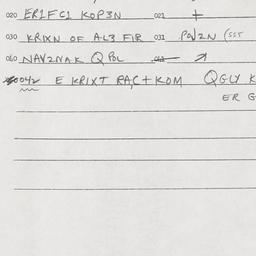 020 ER1FC1 KOP3N 021 +
030 KRIXN OF AL3 FIR 031 POV2N (SST
060 NAV2NAK Q POL
0042 E KRIXT RAC+KOM QGLY K
ER G